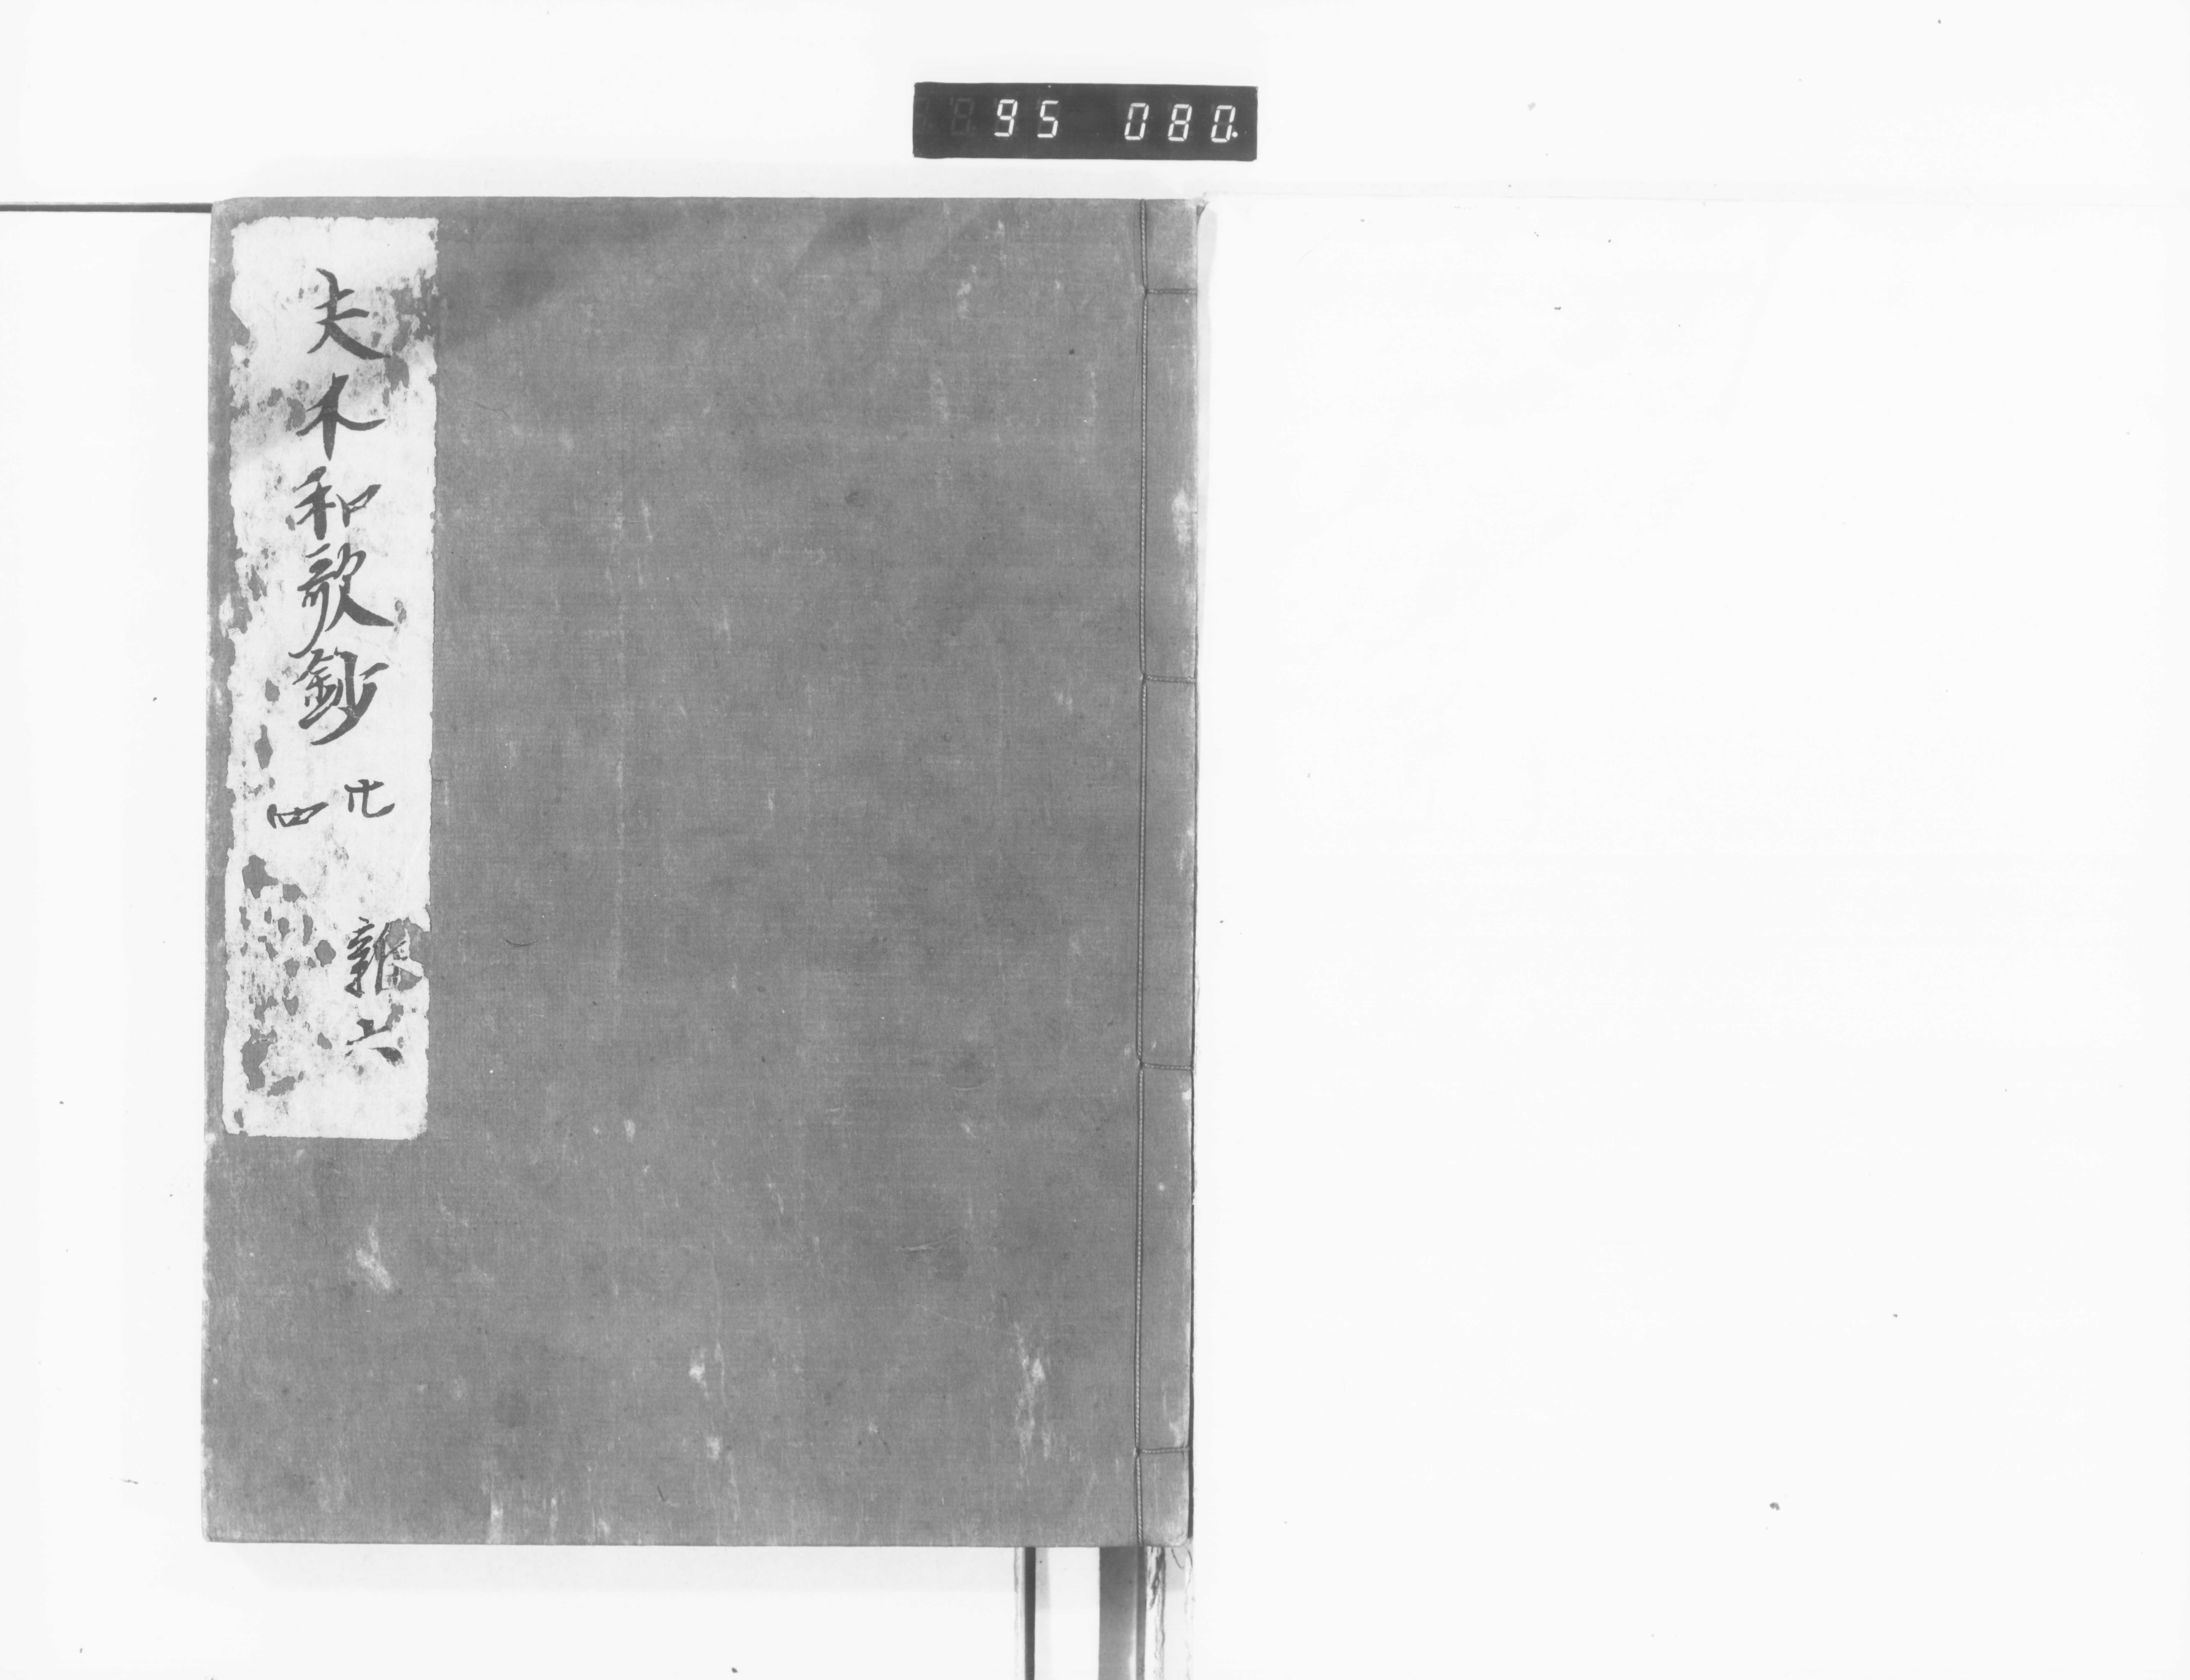 95 080.
夫木和歌鈔 廿四 雜六